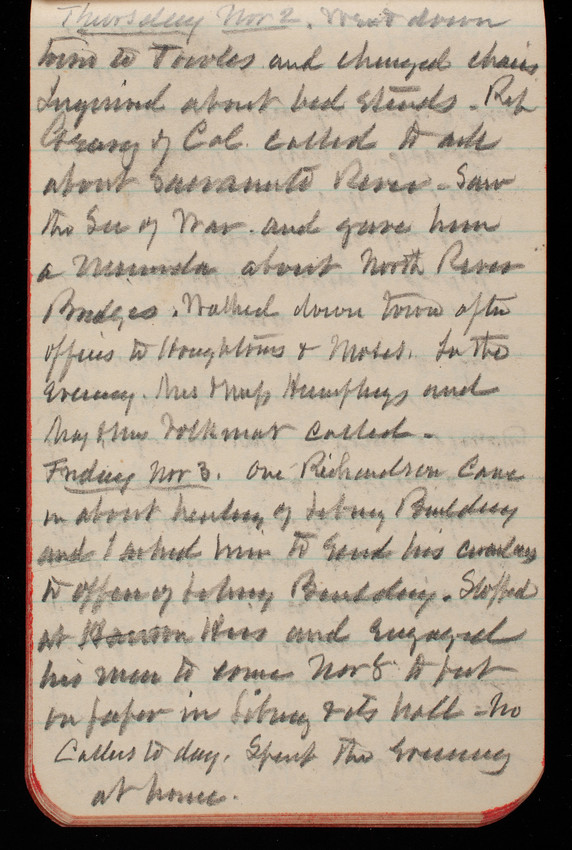 Thursday Nov 2. Went down
town to Towles and changed chairs
Inquired about bed steads - Rep
Geary of Cal. called to ask
about Sacramento River - Saw
the Sec of War and gave him
a memorda about North River
Bridges. Walked down town after
office to Houghtons & Moses. In the
Evening. Mrs & Miss Humphreys and
Maj & Mrs Volkmar called -
Friday Nov 3. One Richardson Came
in about heating of Library Building
and I asked him to send his circulars
to office of Library Building. Stopped
at and Engaged
his men to come Nov 8 to put
on paper in Library & its hall - No
Callers to day. Spent the Evening
at home.